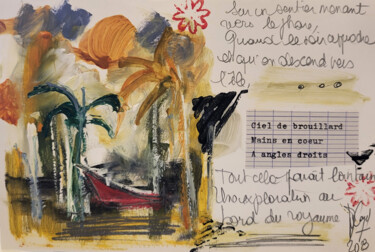 Sur un sentier menant
vers le phare,
Quand le soir approche
et qu'on descend vers
l'île
Ciel de brouillard
Mains en coeur
A angles droits
Tout cela paraît lointain
Une exploration au
bord du royaume